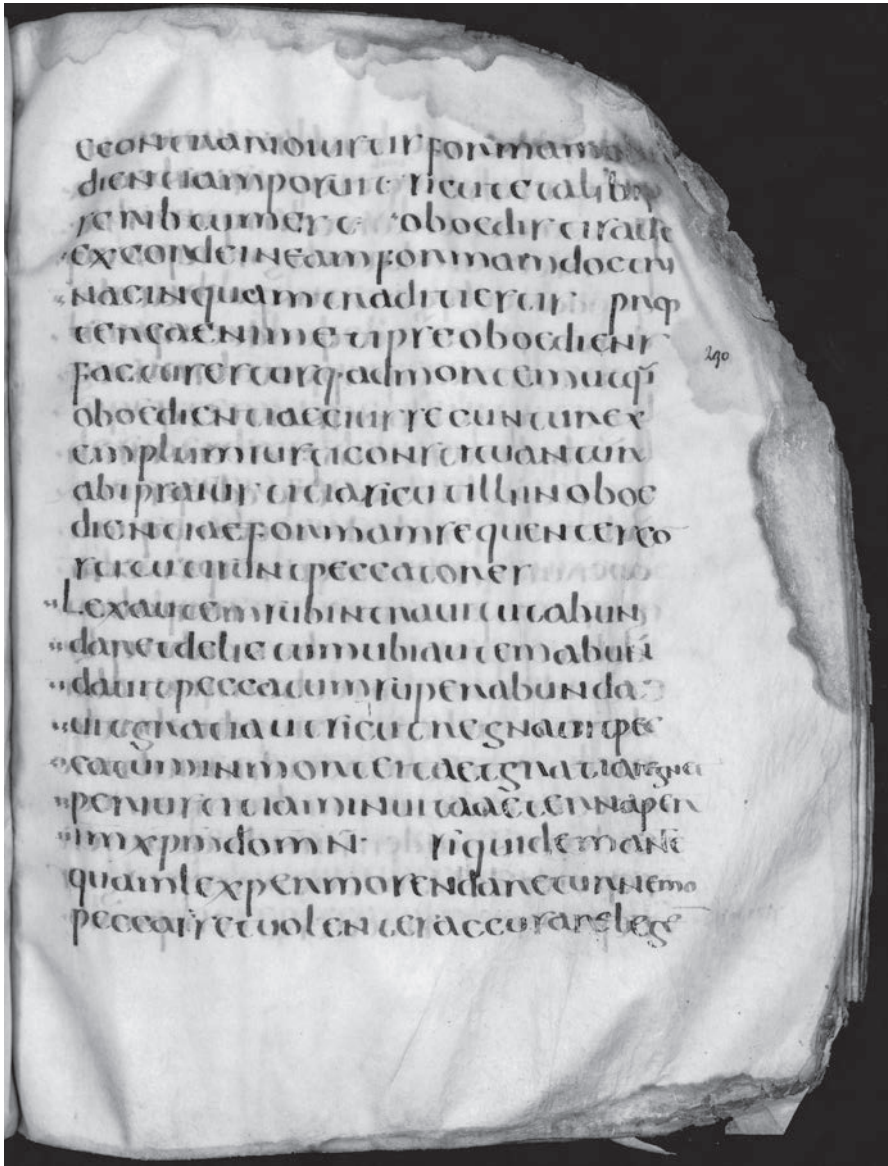 econtrario iustis formam obo
dientiam posuit sicut et alibi
scribtum est · oboedistis aute
ex corde in eam formam doctri
nae in quam traditi estis · prop
terea enim et ipse oboediens
factus est usq· ad mortem ut qi
oboedientiae eius secuntur ex
emplum iusti constituantur
ab ipsa iustitia sicut illi inoboe
dientiae formam sequentes co
stituti sunt peccatores
Lex autem subintrauit ut abun
daret delictum ubi autem abun
dauit peccatum superabunda
uit gratia ut sicut regnauit pec
catum in mortem ita et gratia regnet
per iustitiam in uita aeterna per
ihm xpm dom n · siquidem ante
quam lex per mosen daretur nemo
peccasset uolenter accusare lege
290